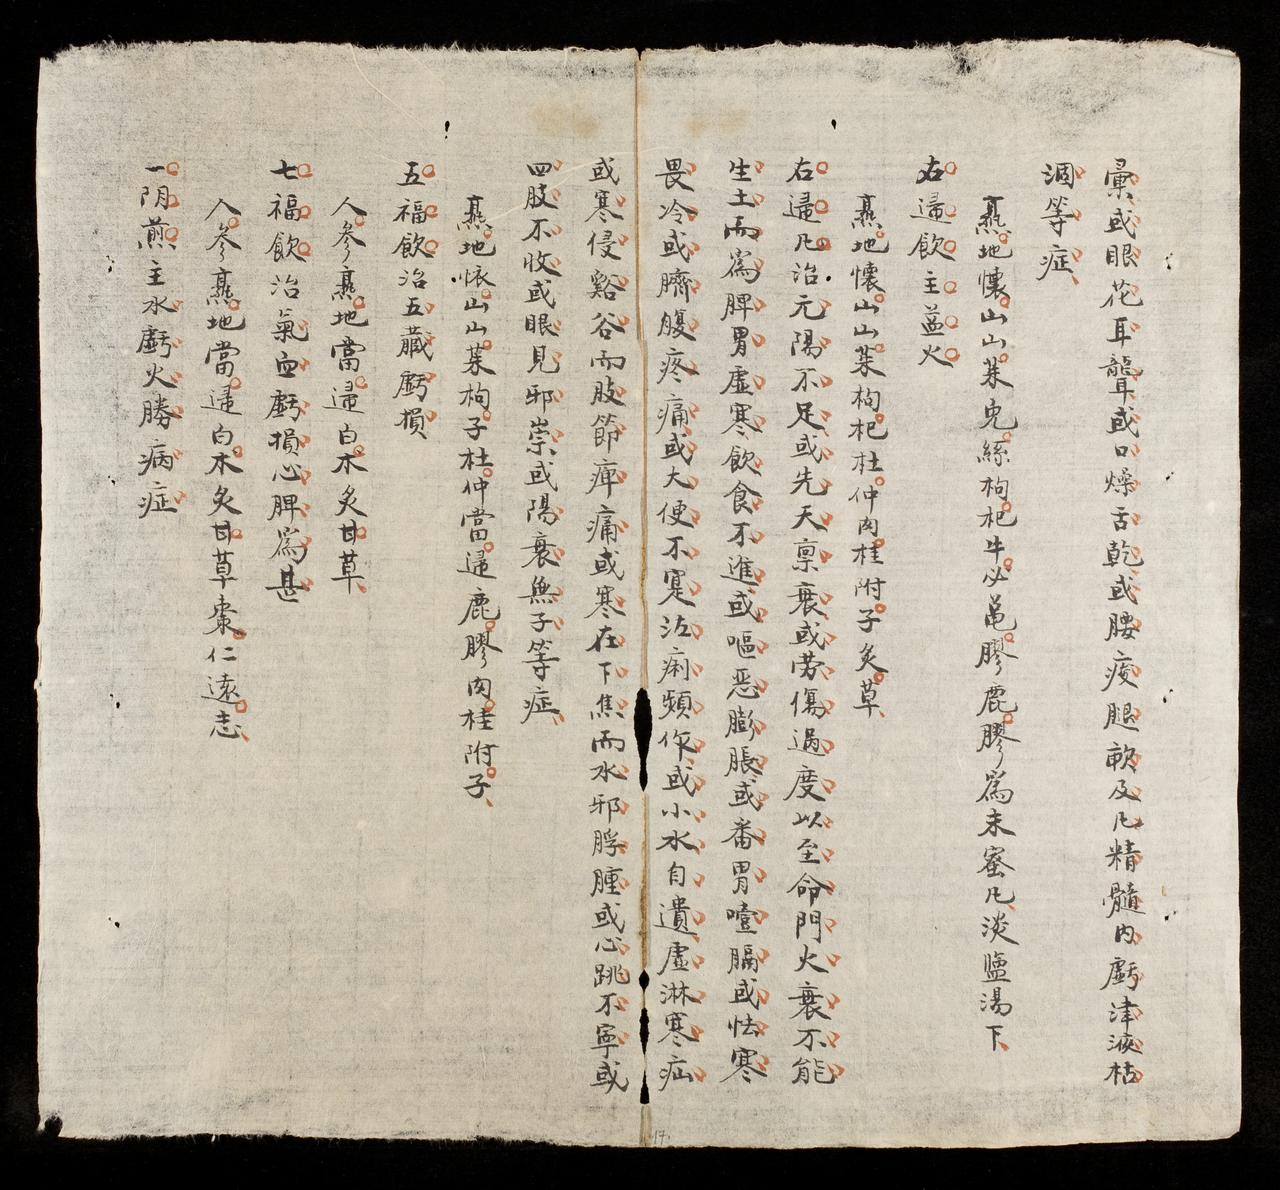 彙或眼花耳聾或口燥舌乾或腰痠腿軟及凡精髓內虧津液枯
涸等症
熹地懷山山茱兔絲枸杞牛必龟膠鹿膠為末蜜凡淡盬湯下
右歸飲主益火
熹地懷山山茱枸杞杜仲肉桂附子炙草
右歸凡治元陽不足或先天禀衰或劳傷過度以至命門火衰不能
生土而為脾胃虛寒飲食不進或嘔恶膨脹或番胃噎膈或怯寒
畏冷或臍腹疼痛或大便不寔泄痢頻作或小水自遺虛淋寒疝
或寒侵谿谷而肢節痺痛或寒在下焦而水邪脬腫或心跳不寧或
四肢不收或眼見邪崇或陽衰無子等症
熹地怀山山茱枸子杜仲當歸鹿膠肉桂附子
五福飲治五藏虧損
人參熹地當歸白朮炙甘草
七福飲治氣血虧損心脾為甚
人參熹地當歸白朮炙甘草棗仁遠志
一阴煎主水虧火勝病症
17.